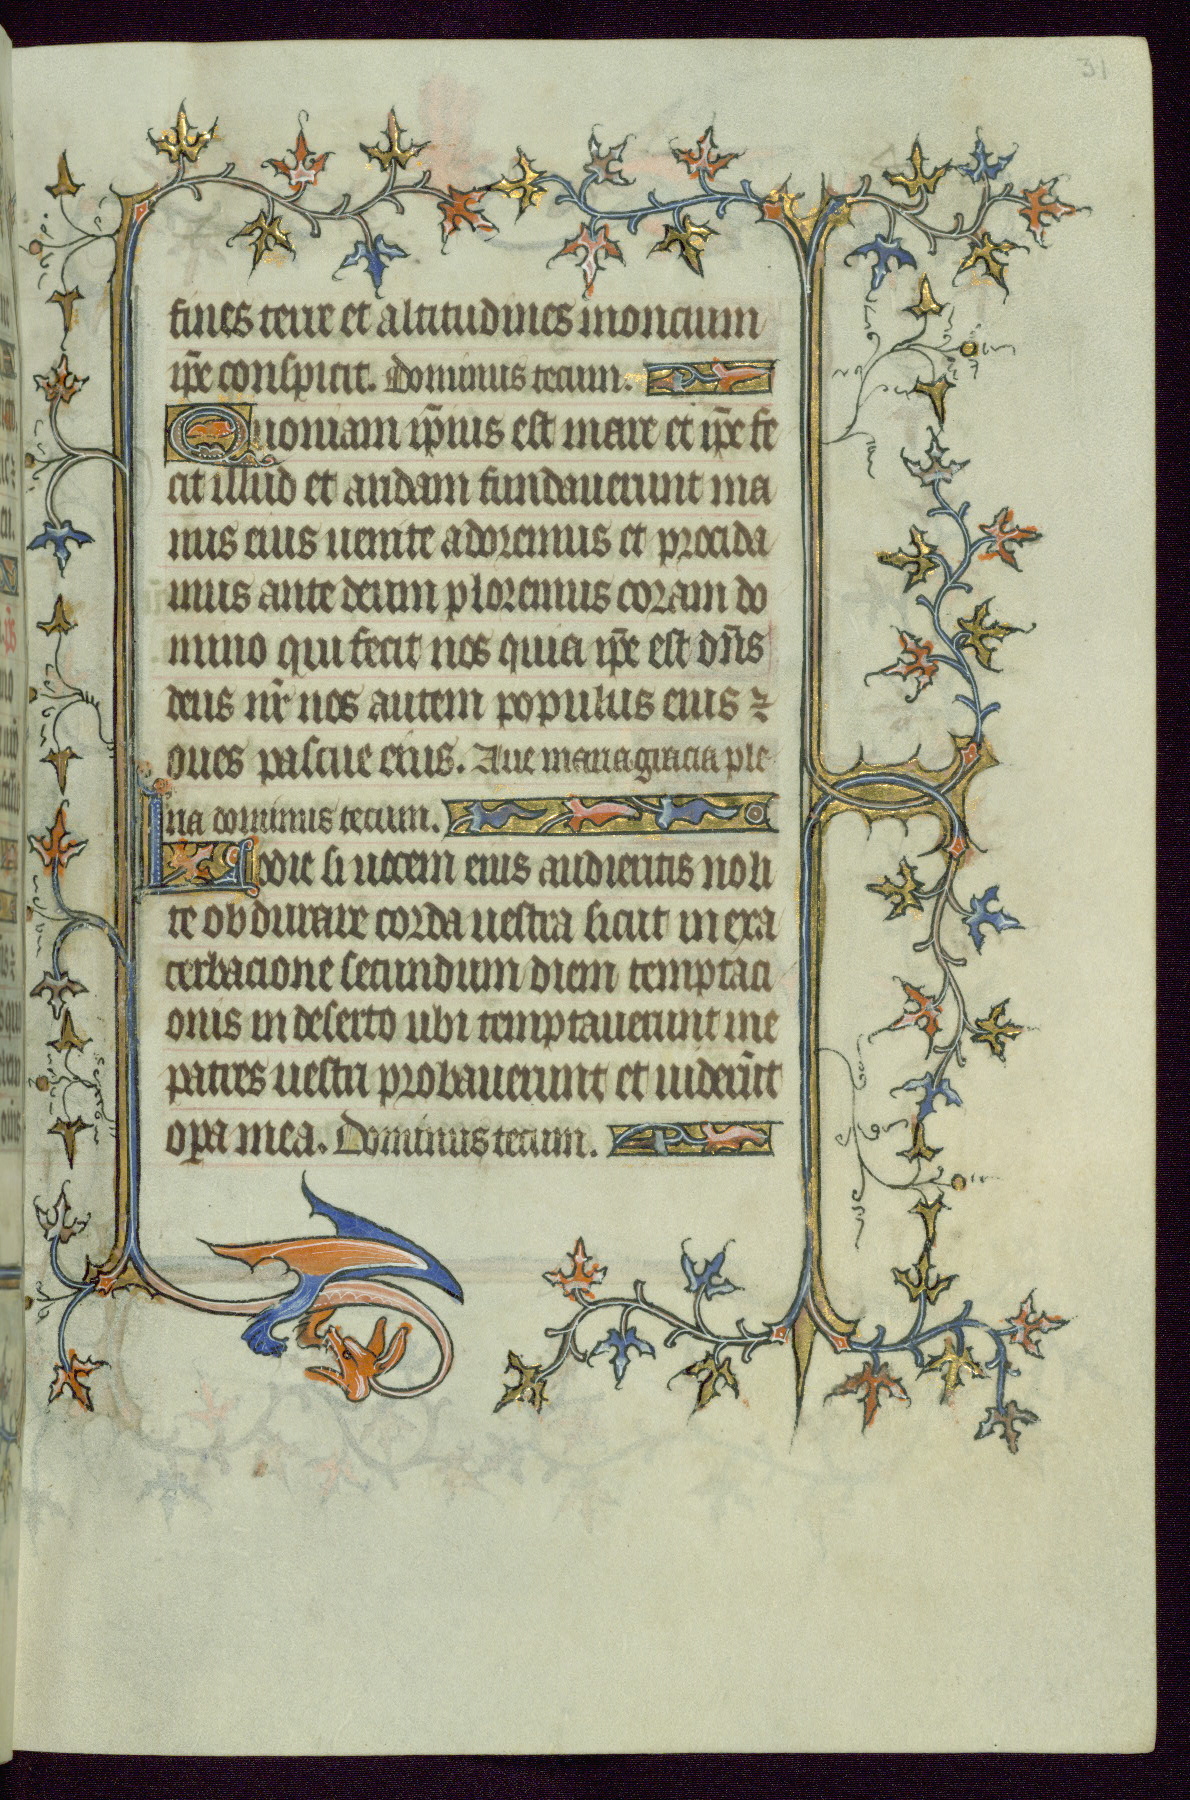 31
fines terre et altitudines moncium
ip̄e conspicit. Dominus tecum.
Quoniam ip̄ius est mare et ip̄e fe
cit illud et aridam fundauerunt ma
nus eius uenite adoremus et procida
mus ante deum ploremus coram do
mino qui fecit nos quia ip̄e est dn̄s
deus nr̄ nos autem populus eius ⁊
oues pascue eius. Aue maria gracia ple
na dominus tecum.
Hodie si uocem eius audieritis noli
te obdurare corda uestra sicut in exa
cerbacione secundum diem temptaci
onis in deserto ubi temptauerunt me
patres uestri probauerunt et uiderūt
opa mea. Dominus tecum.